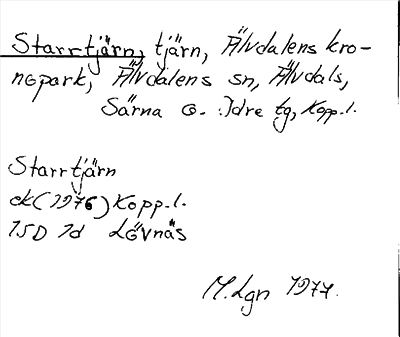 Starrtjärn, tjärn, Älvdalens kro-
nopark, Älvdalens sn, Älvdals,
Särna o. Idre tg, Kopp.l.
Starrtjärn
ek(1976) Kopp.l.
15D 1d Lövnäs
M.Lgn 1977.